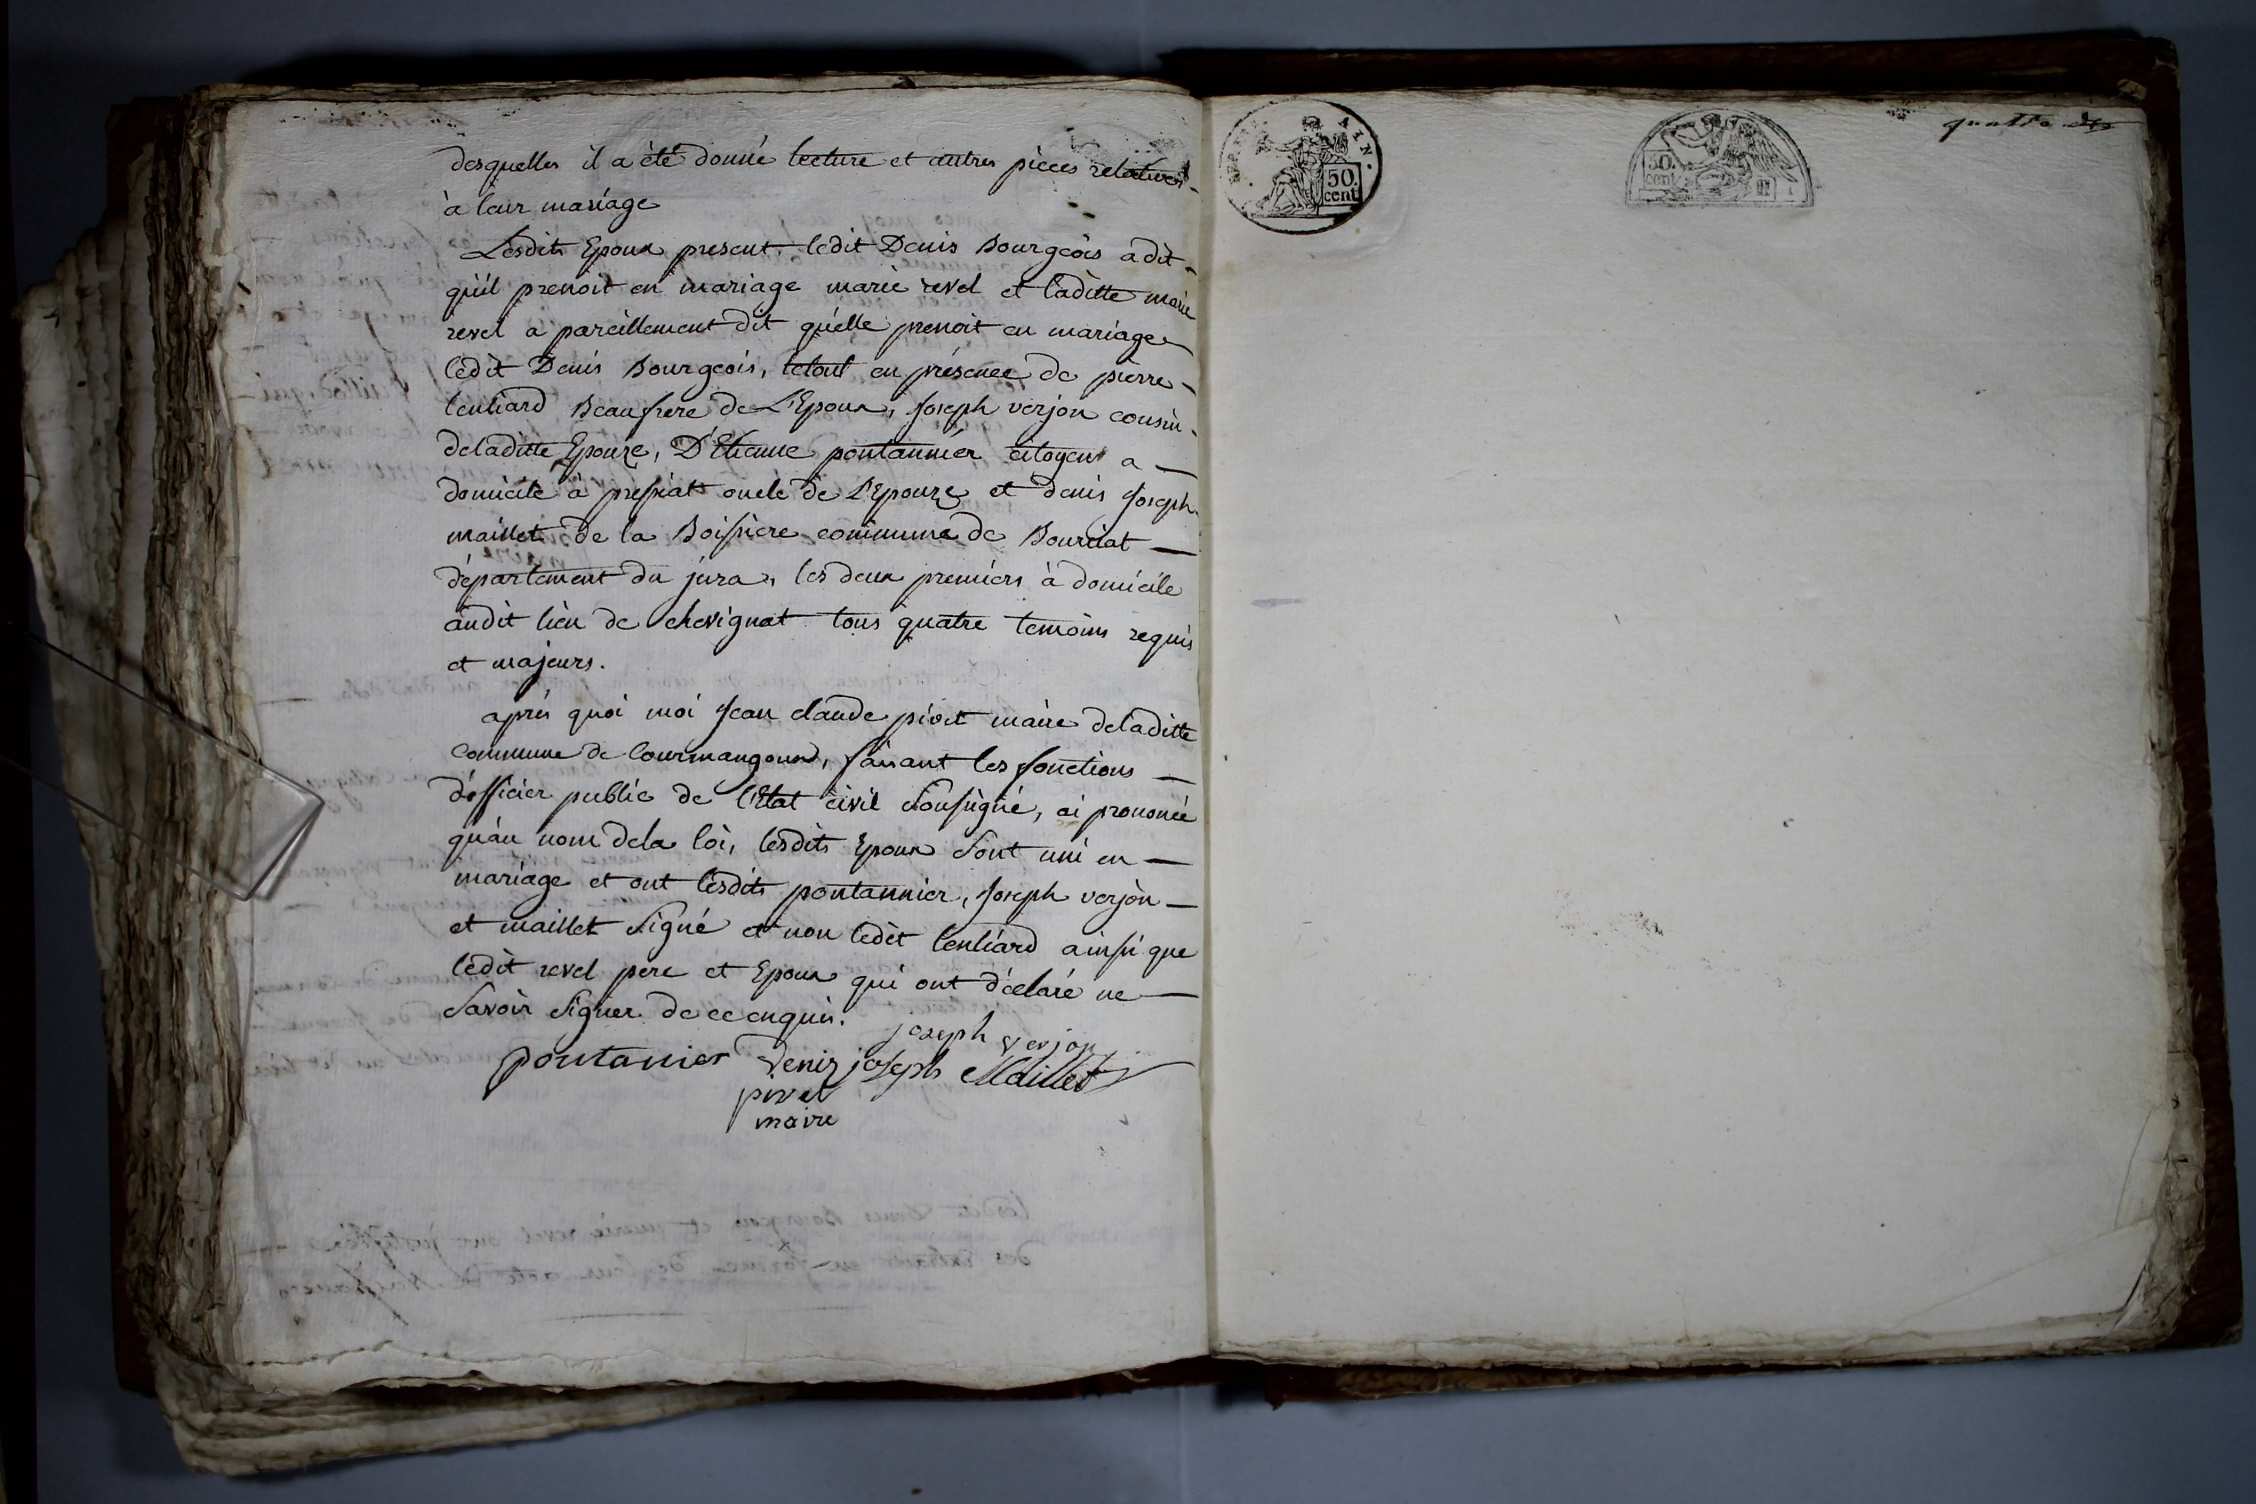 desquelles il a été donné lecture et autres pieces relatives
à leur mariage
Lesdits Epoux present, ledit Denis Bourgeois a dit
qu'il prenoit en mariage marie revel et laditte marie
revel a pareillement dit qu'elle prenoit en mariage
ledit Denis Bourgeois, letout en présence de pierre
lentiard Beaufrere de L'Epoux, Joseph verjon cousin
deladitte Epouze, D'Etienne pontannier citoyen a
domicile à pressiat oncle de L'Epouze et denis Joseph
maillet de la Boissiere commune de Bourciat
département du jura, les deux premiers à domicile
audit lieu de chevignat tous quatre temoins requis
et majeurs.
après quoi moi Jean claude pivet maire deladitte
commune de Courmangoux, faisant les fonctions
d'officier public de l'Etat civil soussigné, ai prononcé
qu'au nom dela loi, lesdits Epoux sont uni en
mariage et ont lesdits pontannier, Joseph verjon
et maillet signé et non ledit lentiard ainsi que
ledit revel pere et Epoux qui ont déclaré ne
savoir signer de ce enquis.
joseph verjon
pontanier denis joseph Maillet
pivet
maire
AIN.
50.
cent
50.
cent
quatre